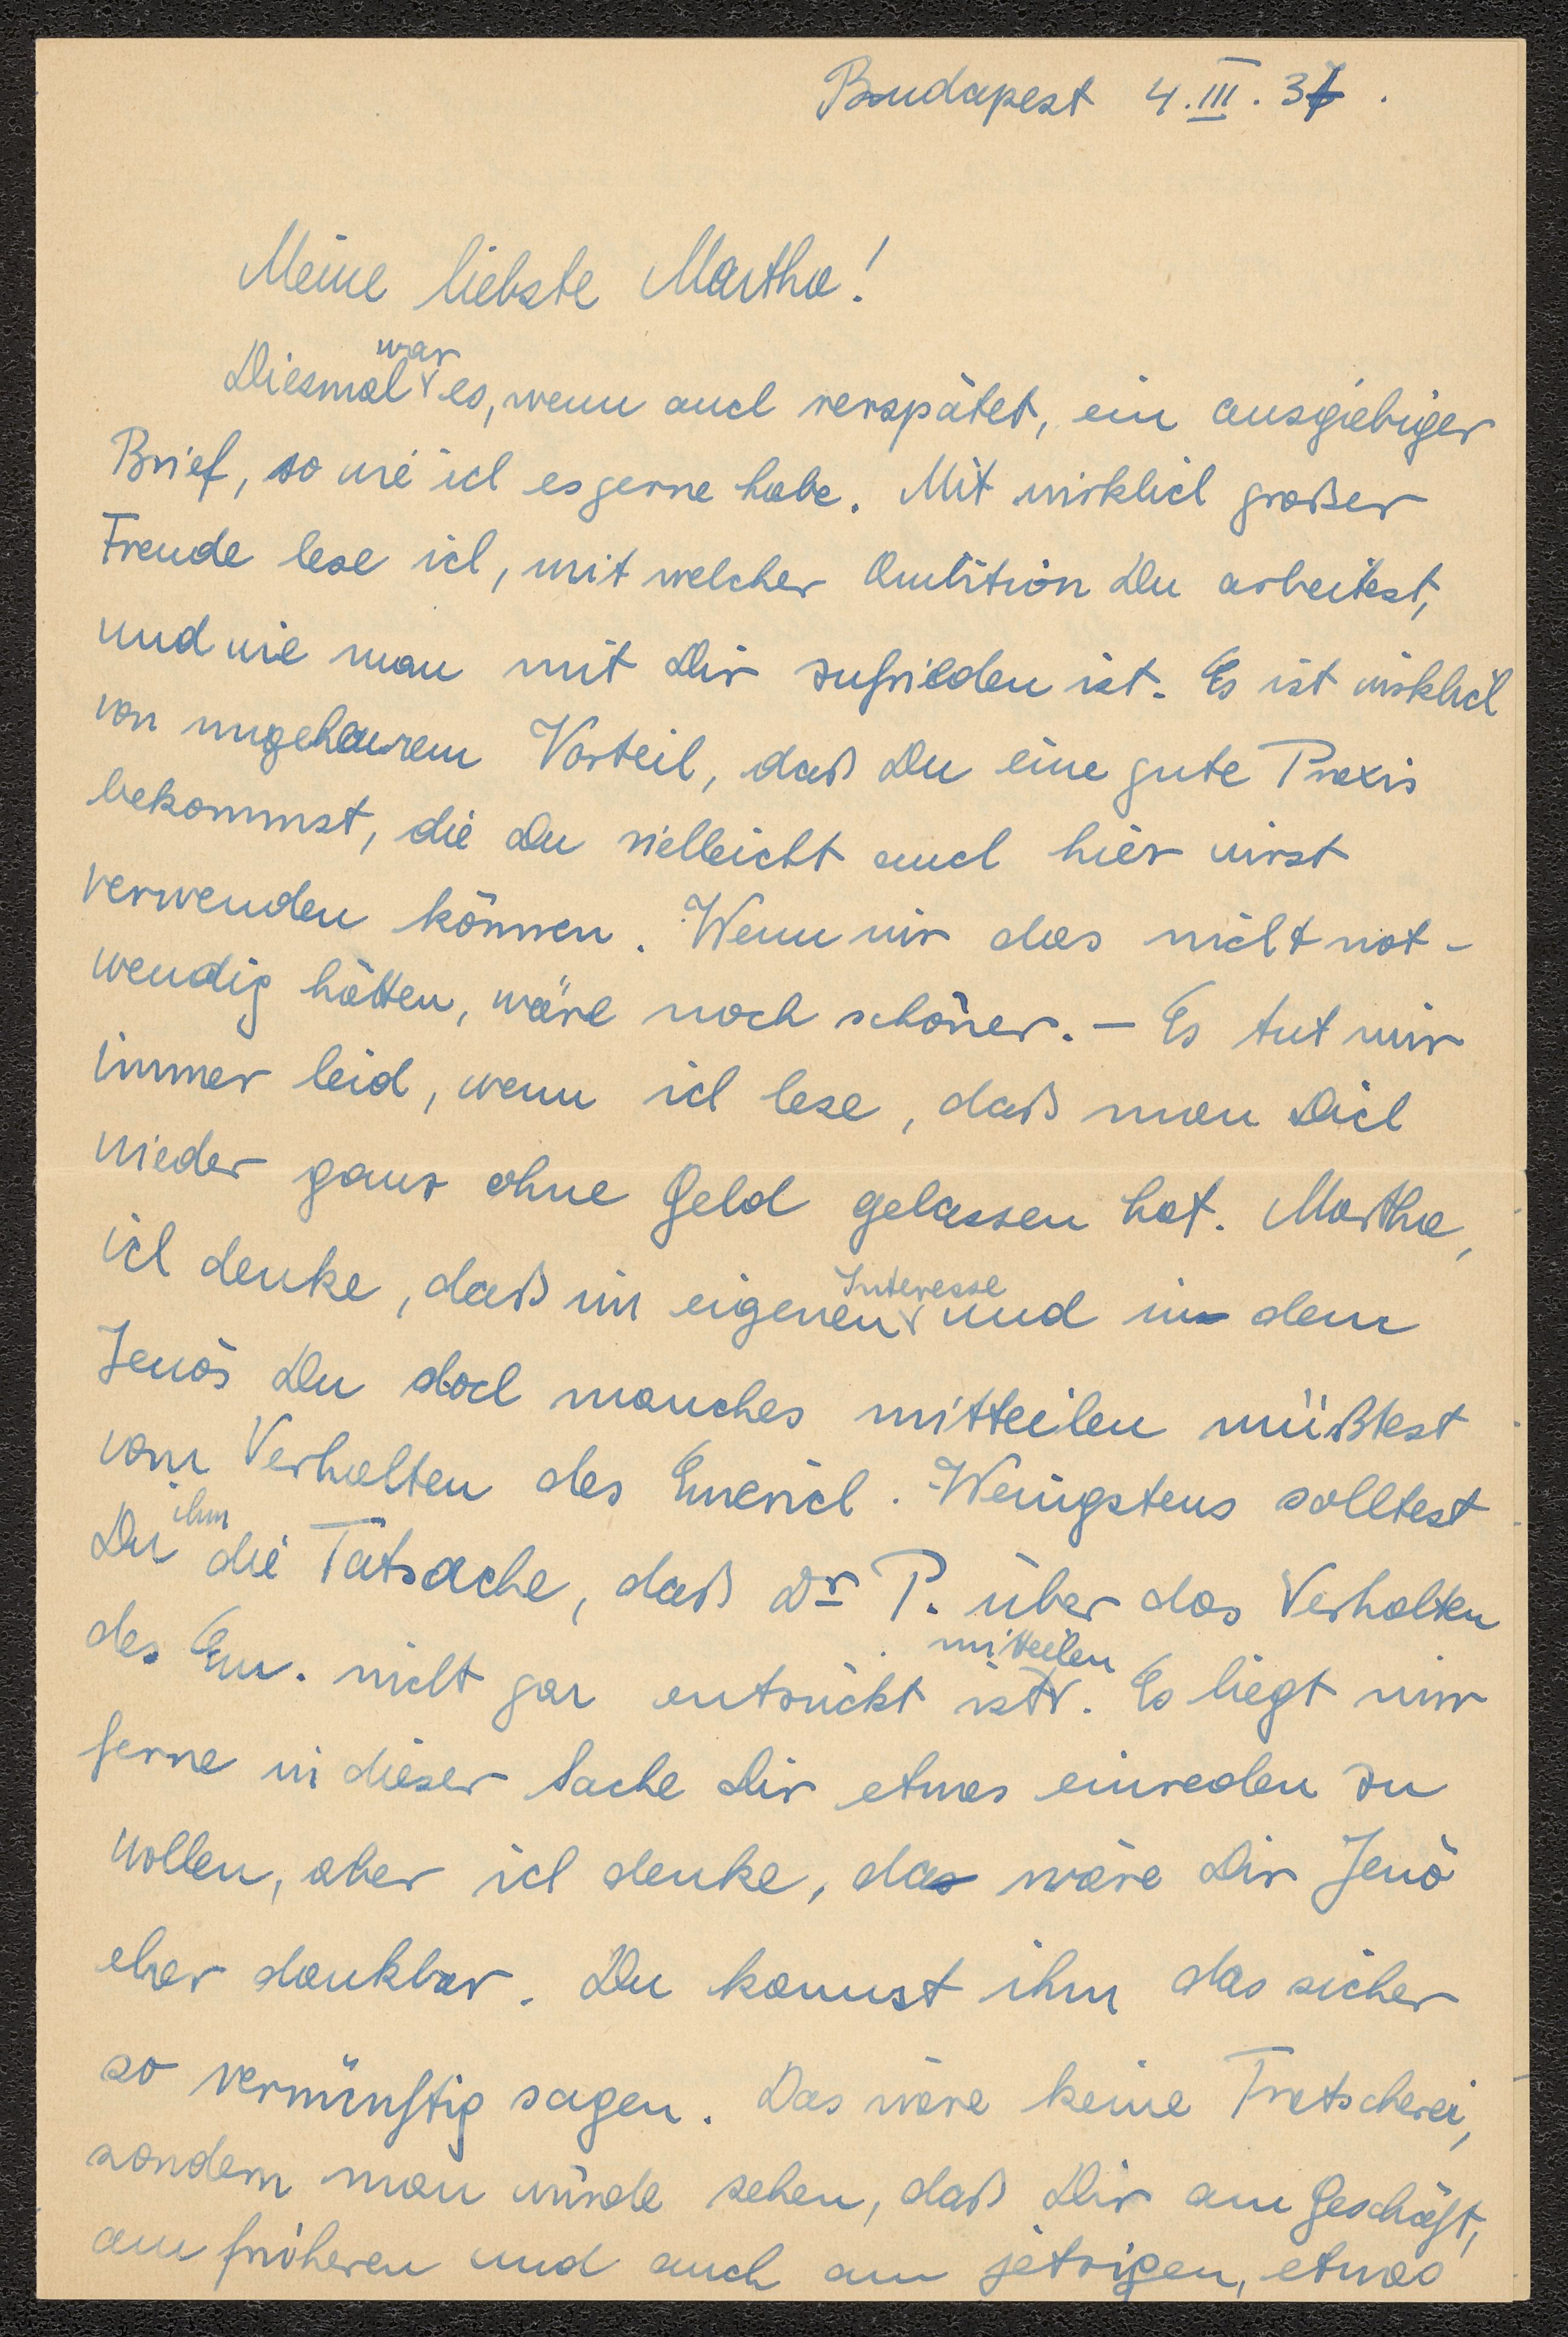 Budapest 4.III.37.
Meine liebste Martha!
Diesmal war es, wenn auch verspätet, ein ausgiebiger
Brief, so wie ich es gerne habe. Mit wirklich großer
Freude lese ich, mit welcher Ambition Du arbeitest,
und wie man mit Dir zufrieden ist. Es ist wirklich
von ungeheurem Vorteil, daß Du eine gute Praxis
bekommst, die Du vielleicht auch hier wirst
verwenden können. Wenn wir das nicht not-
wendig hätten, wäre noch schöner. – Es tut mir
immer leid, wenn ich lese, daß man Dich
wieder ganz ohne Geld gelassen hat. Martha,
ich denke, daß im eigenen Interesse und in dem
Jenös Du doch manches mitteilen müßtest
vom Verhalten des Emerich. Wenigstens solltest
Du ihm die Tatsache, daß Dr P. über das Verhalten
des Em. nicht gar entzückt ist mitteilen. Es liegt mir
ferne in dieser Sache Dir etwas einreden zu
wollen, aber ich denke, das wäre Dir Jenö
eher dankbar. Du kannst ihm das sicher
so vernünftig sagen. Das wäre keine Tratscherei,
sondern man würde sehen, daß Dir am Geschäft,
am früheren und auch am jetzigen, etwas